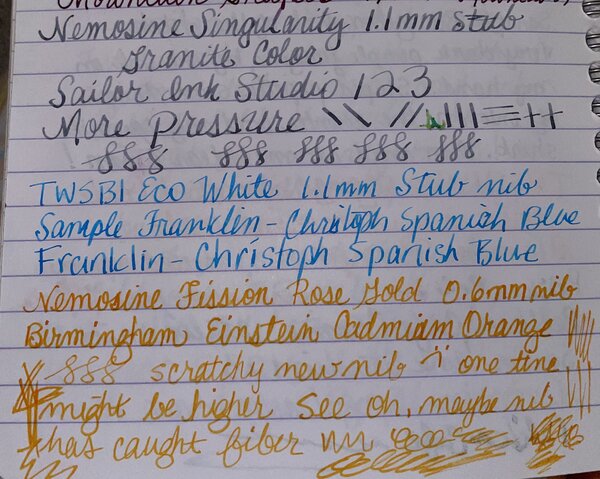 Nemosine Singularity 1.1mm Stub
Granite Color
Sailor Ink Studio 123
More Pressure
TWSBI Eco White 1.1mm Stub nib
Sample Franklin-Christoph Spanish Blue
Franklin-Christoph Spanish Blue
Nemosine Fission Rose Gold 0.6mm nib
Birmingham Einstein Cadmiam Orange
scratchy new nib one tine
might be higher see oh, maybe nib
has caught fiber